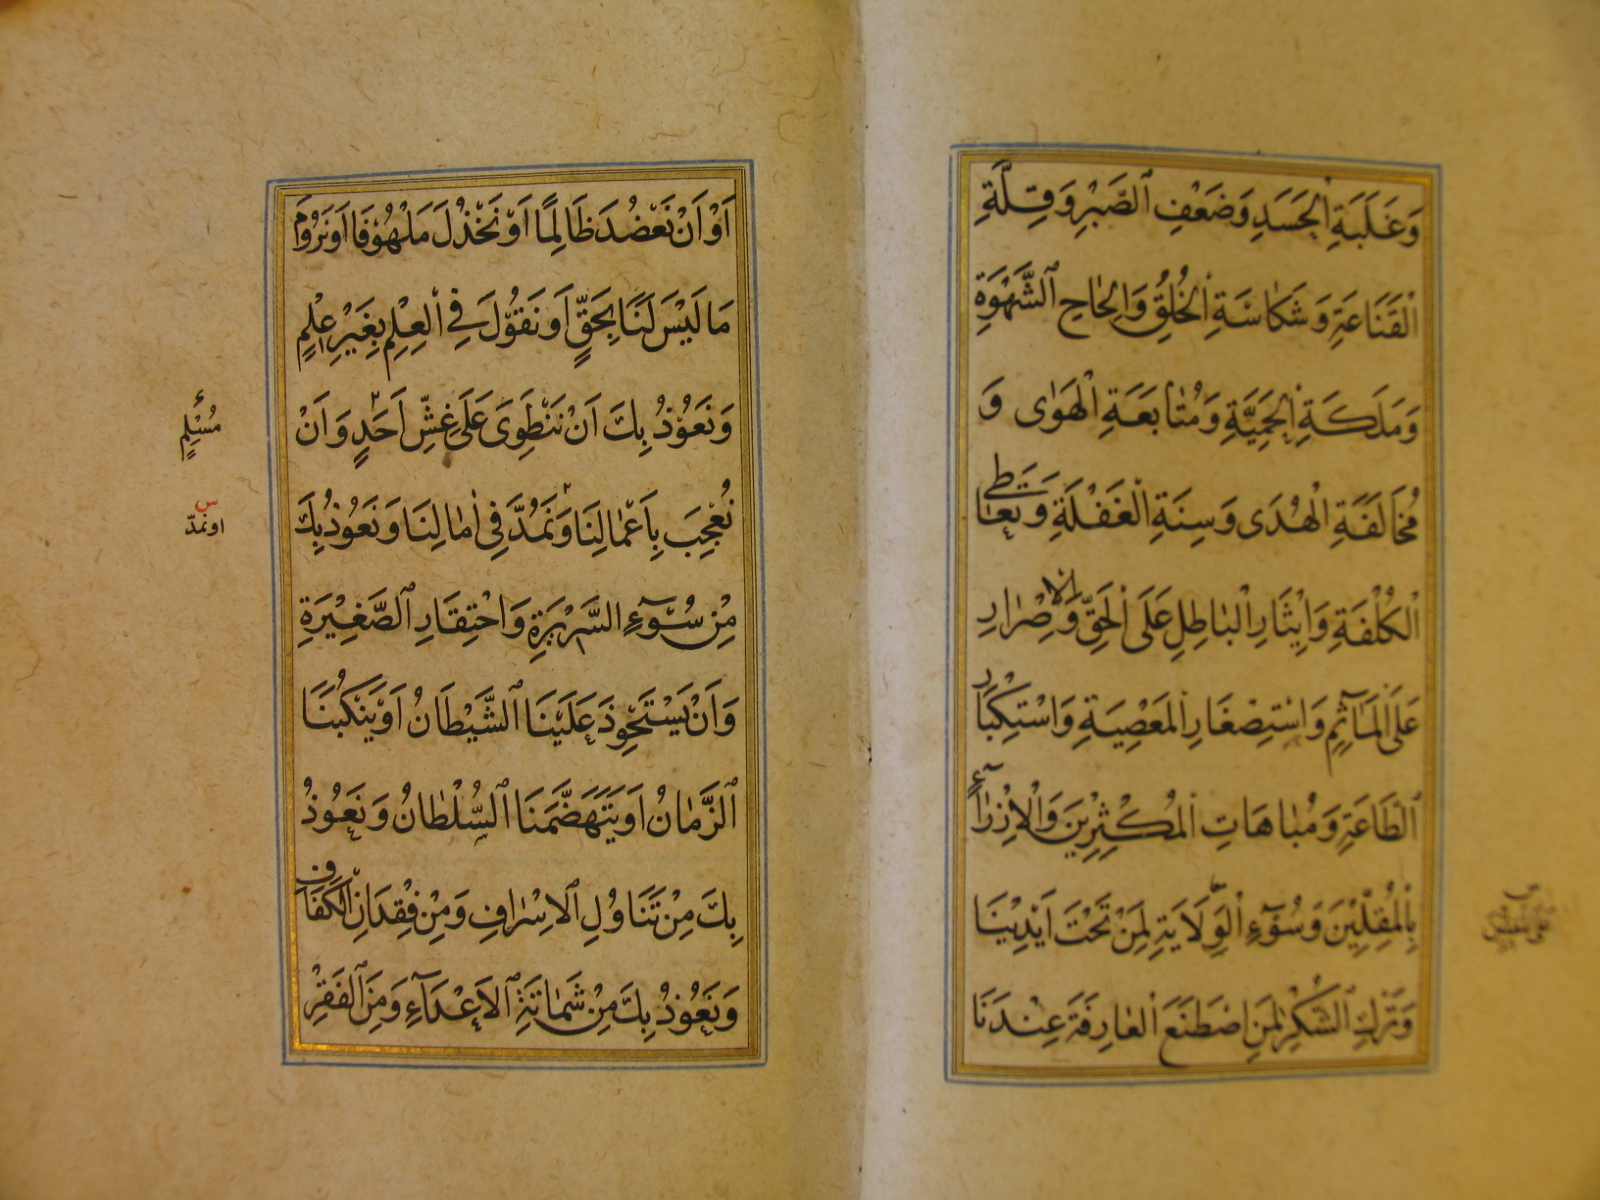 وَغَلَبَةِ الْحَسَدِ وَضَعْفِ الصَّبْرِ وَقِلَّةِ
الْقَنَاعَةِ وَشَكَاسَةِ الْخُلُقِ وَاِلْحَاحِ الشَّهْوَةِ
وَمَلَكَةِ الْحَمِيَّةِ وَمُتَابَعَةِ الْهَوٰى وَ
مُخَالَفَةِ الْهُدَى وَسِنَةِ الْغَفْلَةِ وَتَعَاطِى
الْكُلْفَةِ وَاِيْثَارِ الْبَاطِلِ عَلَى الْحَقِّ وَالْاِصْرَارِ
عَلَى الْمَآثِمِ وَاسْتِصْغَارِ الْمَعْصِيَةِ وَاسْتِكْبَارِ
الطَّاعَةِ وَمُبَاهَاتِ الْمُكْثِرِينَ وَالْاِزْرَآءِ
بِالْمُقِلِّيْنَ وَسُوْٓءِ الْوِلَايَةِ لِمَنْ تَحْتَ اَيْدِيْنَا
وَتَرْكِ الشُّكْرِ لِمَنِ اصْطَنَعَ الْعَارِفَةَ عِنْدَنَا
اَوْ اَنْ نَعْضُدَ ظَالِمًا اَوْ نَخْذُلَ مَلْهُوْفًا اَوْ نَرُوْمَ
مَا لَيْسَ لَنَا بِحَقٍّ اَوْ نَقُوْلَ فِي الْعِلْمِ بِغَيْرِ عِلْمٍ
وَنَعُوْذُ بِكَ اَنْ نَنْطَوِىَ عَلَى غِشِّ اَحَدٍ وَاَنْ
مُسْلِمٍ
نُعْجِبَ بِاَعْمَالِنَا وَنَمُدَّ فِى اٰمَالِنَا وَنَعُوْذُ بِكَ
س
اونمدّ
مِنْ سُوْٓءِ السَّرِيْرَةِ وَاحْتِقَارِ الصَّغِيْرَةِ
وَاَنْ يَسْتَحْوِذَ عَلَيْنَا الشَّيْطَانُ اَوْ يَنْكُبَنَا
الزَّمَانُ اَوْ يَتَهَضَّمَنَا السُّلْطَانُ وَنَعُوْذُ
بِكَ مِنْ تَنَاوُلِ الْاِسْرَافِ وَمِنْ فِقْدَانِ الْكَفَافِ
وَنَعُوْذُ بِكَ مِنْ شَمَاتَةِ الْاَعْدَآءِ وَمِنَ الْفَقْرِ